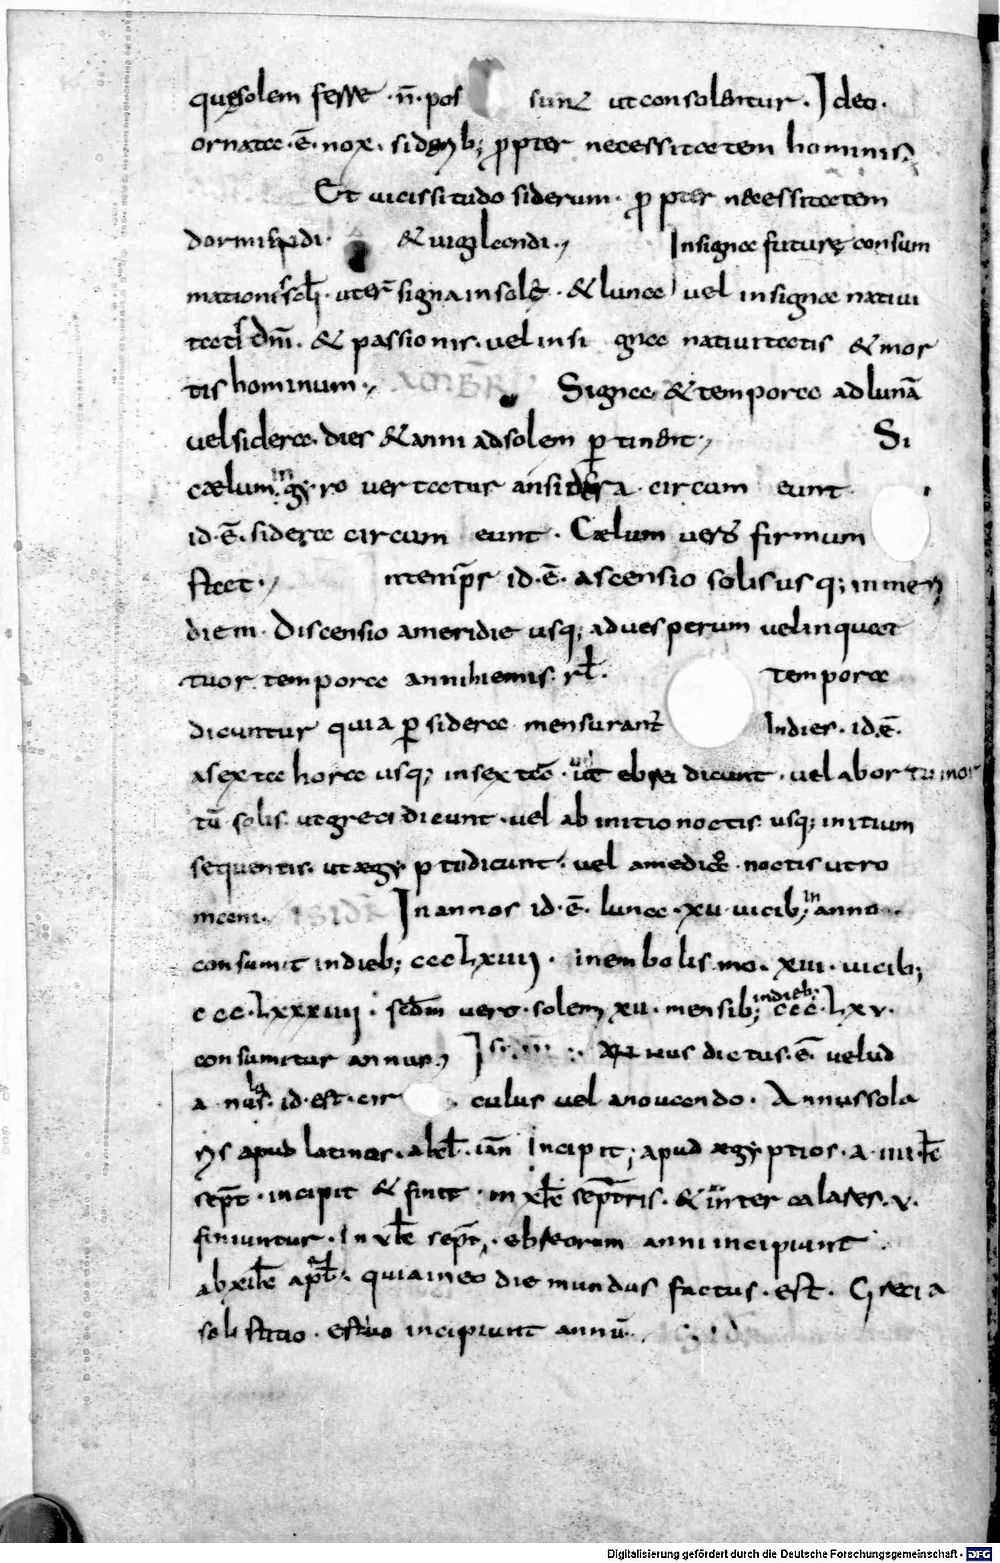 quęsolem fesse · n̄ · pos sunt ut consolentur · Ideo ·
ornata · ē · nox · siderib; propter necessitatem hominis,
Et uicissitudo siderum · propter necessitatem
dormiendi · & uigilandi ·, In signa futurę consum
mationis · uter̄ signa in sole · & luna vel in signa natiui
tatis dn̄i · & passionis · vel in si gna natiuitatis & mor
tis hominum ·, Signa & tempora ad lunā
vel sidera · dies & anni ad solem pertinent ·, Si
cælum in gyro vertatur an sidera circum eunt
id · ē · sidera circum eunt · Cælum vero firmum
stat ·, id · ē · ascensio solis usq; in meri
diem · Discensio a meridie usq; ad vesperum vel in quat
tuor tempora anni hiemis · rl̄ · tempora
dicuntur quia p̱ sidera mensurant̄ In dies · id · ē ·
a sexta hora usq; in sextā · ut ebrei dicunt · vel ab ortu in or
tū solis · ut greci dicunt · vel ab initio noctis usq; initium
sequentis · ut ægyptii dicunt · vel a media noctis utro
In annos id · ē · luna · xii · uicib; in anno ·
consumit in dieb; cccLxiiii · in embolismo · xiii · uicib;
ccc · Lxxxiiii · secdm vero · solem xii · mensib; in dieb; ccc · Lxv ·
consumitur annus, dictus · ē · velud
a nulus · id · est · cir culus vel a novando · Annus sola
ris apud latinos · a kl̄ · ian̄ Incipit; apud ægyptios · a · iiii · kl̄e
sept̄ · incipit & finit · in kl̄e septris · & inter calares · v ·
finiuntur · In v kl̄e sept̄ · ebreorum anni incipiunt
ab xii kl̄e apl̄ · quia in eo die mundus factus · est · Greci a
solistitio · estivo incipiunt annū ·